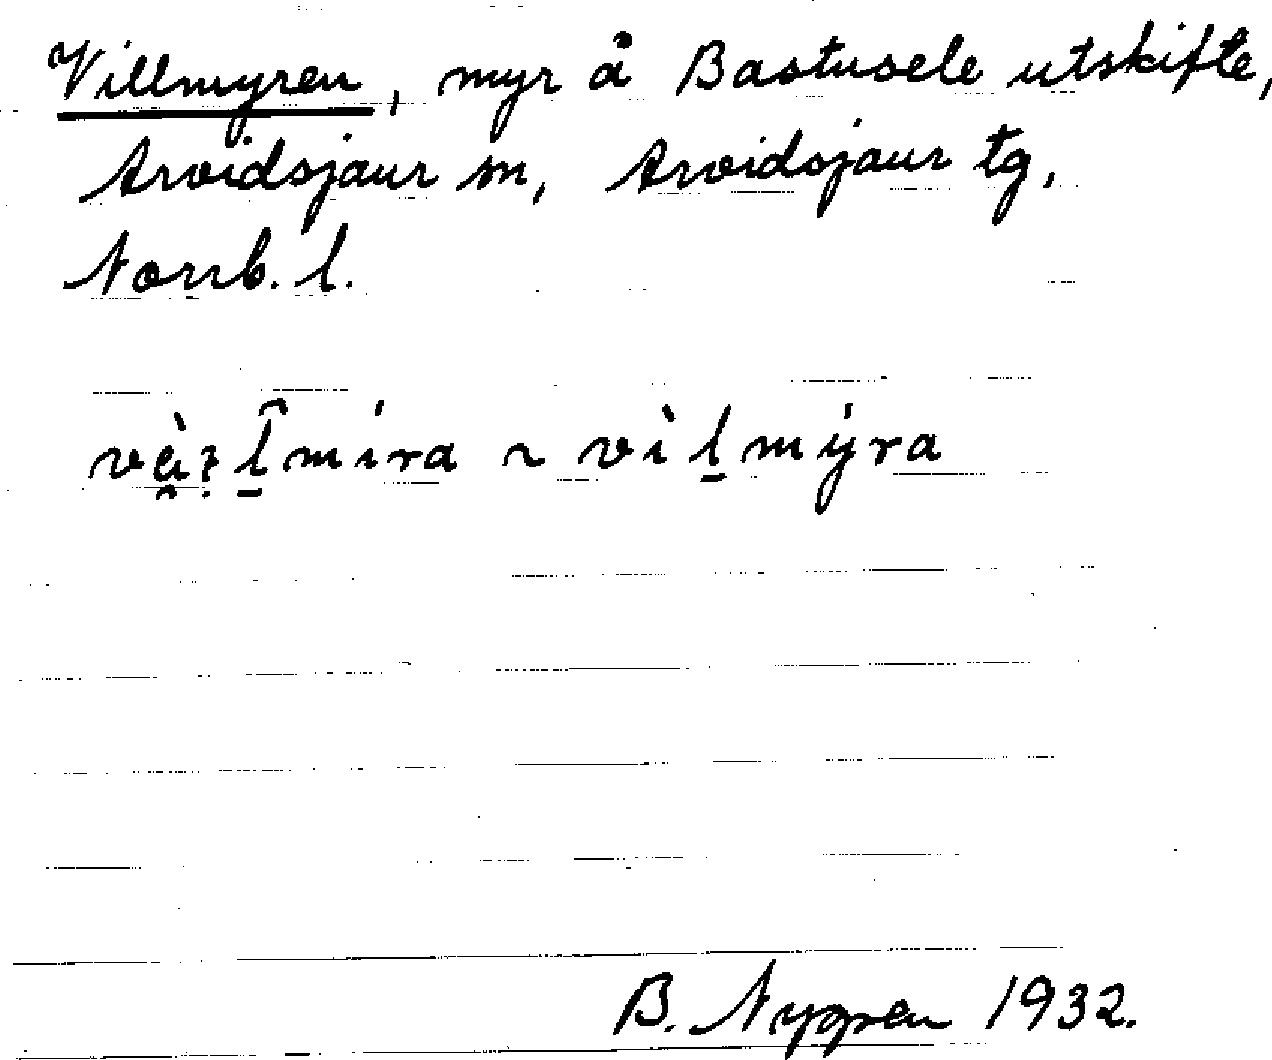 Villmyren, myr å Bastusele utskifte,
Arvidsjaur sn, Arvidsjaur tg,
Norrb. l.
~ vìḻmýra
B. Nyggren 1932.